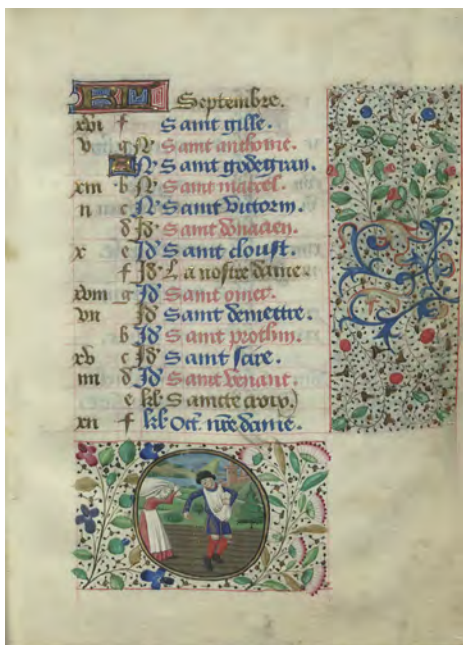 KL Septembre.
xvi f Saint gille.
v g N Saint anthoine.
A N Saint godegran.
xiii b N Saint marcel.
ii c N Saint victorin.
d Id Saint donacien.
x e Id Saint cloust.
f Id La nostre dame
xviii g Id Saint omer.
vii Id Saint demettre.
b Id Saint prothin.
xv c Id Saint sire.
iiii d Id Saint venant.
e kl Saincte croix
xii f kl Oct. nre dame.